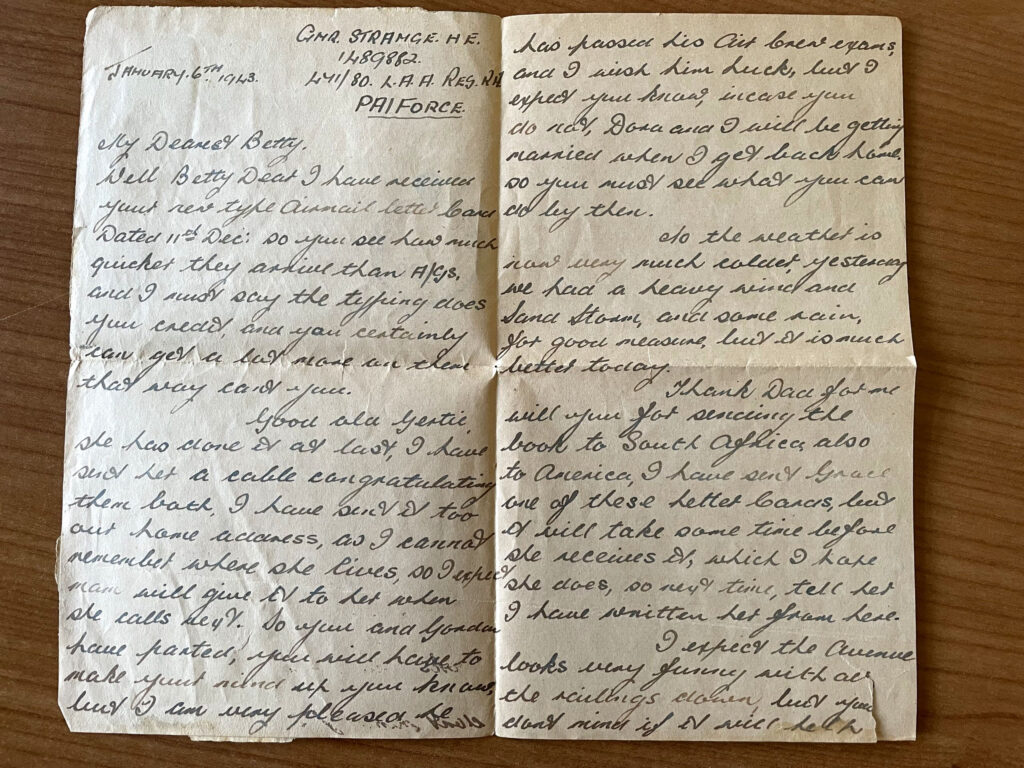 GNR. STRANGE. H E.
1489882.
JANUARY. 6TH 1943.
441/80. L.A.A. REG. R.A
PAIFORCE.
My Dearest Betty.
Well Betty Dear I have received
your new type Airmail letter Card
Dated 11st Dec: so you see how much
quicker they arrive than A/Gs,
and I must say the typing does
you credit, and you certainly
can get a lot more on them
that way cant you.
Good old Gertie,
she has done it at last, I have
sent her a cable congratulating
them both, I have sent it too
our home address, as I cannot
remember where she lives, so I expect
mam will give it to her when
she calls next. So you and Gordon
have parted, you will have to
make your mind up you know,
but I am very pleased he
has passed his Air Crew exams,
and I wish him luck, but I
expect you know, incase you
do not, Dora and I will be getting
married when I get back home.
so you must see what you can
do by then.
So the weather is
now very much colder, yesterday
we had a heavy wind and
Sand Storm, and some rain,
for good measure, but it is much
better today.
Thank Dad for me
will you for sending the
book to South Africa, also
to America, I have sent Grace
one of these Letter Cards, but
it will take some time before
she receives it, which I hope
she does, so next time, tell her
I have written her from here.
I expect the Avenue
looks very funny with all
the railings down, but you
dont mind if it will help